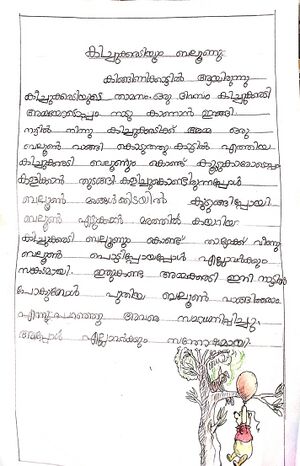 കിച്ചുക്കരടിയും ബലൂണും
കിങ്ങിണിക്കാട്ടിൽ ആയിരുന്നു
കിച്ചുക്കരടിയുടെ താമസം. ഒരു ദിവസം കിച്ചുക്കരടി
അമ്മയോടൊപ്പം നാടു കാണാൻ ഇറങ്ങി
നാട്ടിൽ നിന്നു കിച്ചുക്കരടിക്ക് അമ്മ ഒരു
ബലൂൺ വാങ്ങി കൊടുത്തു. കാട്ടിൽ എത്തിയ
കിച്ചുക്കരടി ബലൂണും കൊണ്ട് കൂട്ടുകാരോടൊപ്പം
കളിക്കാൻ തുടങ്ങി. കളിച്ചുകൊണ്ടിരുന്നപ്പോൾ
ബലൂൺ മരങ്ങൾക്കിടയിൽ കുടുങ്ങിപ്പോയി
ബലൂൺ എടുക്കാൻ മരത്തിൽ കയറിയ
കിച്ചുക്കരടി ബലൂണും കൊണ്ട് താഴേക്ക് വീണു
ബലൂൺ പൊട്ടിപ്പോയപ്പോൾ എല്ലാവർക്കും
സങ്കടമായി. ഇതുകണ്ട അമ്മക്കരടി ഇനി നാട്ടിൽ
പോകുമ്പോൾ പുതിയ ബലൂൺ വാങ്ങിത്തരാം
എന്നു പറഞ്ഞു അവനെ സമാധാനിപ്പിച്ചു
അപ്പോൾ എല്ലാവർക്കും സന്തോഷമായി.